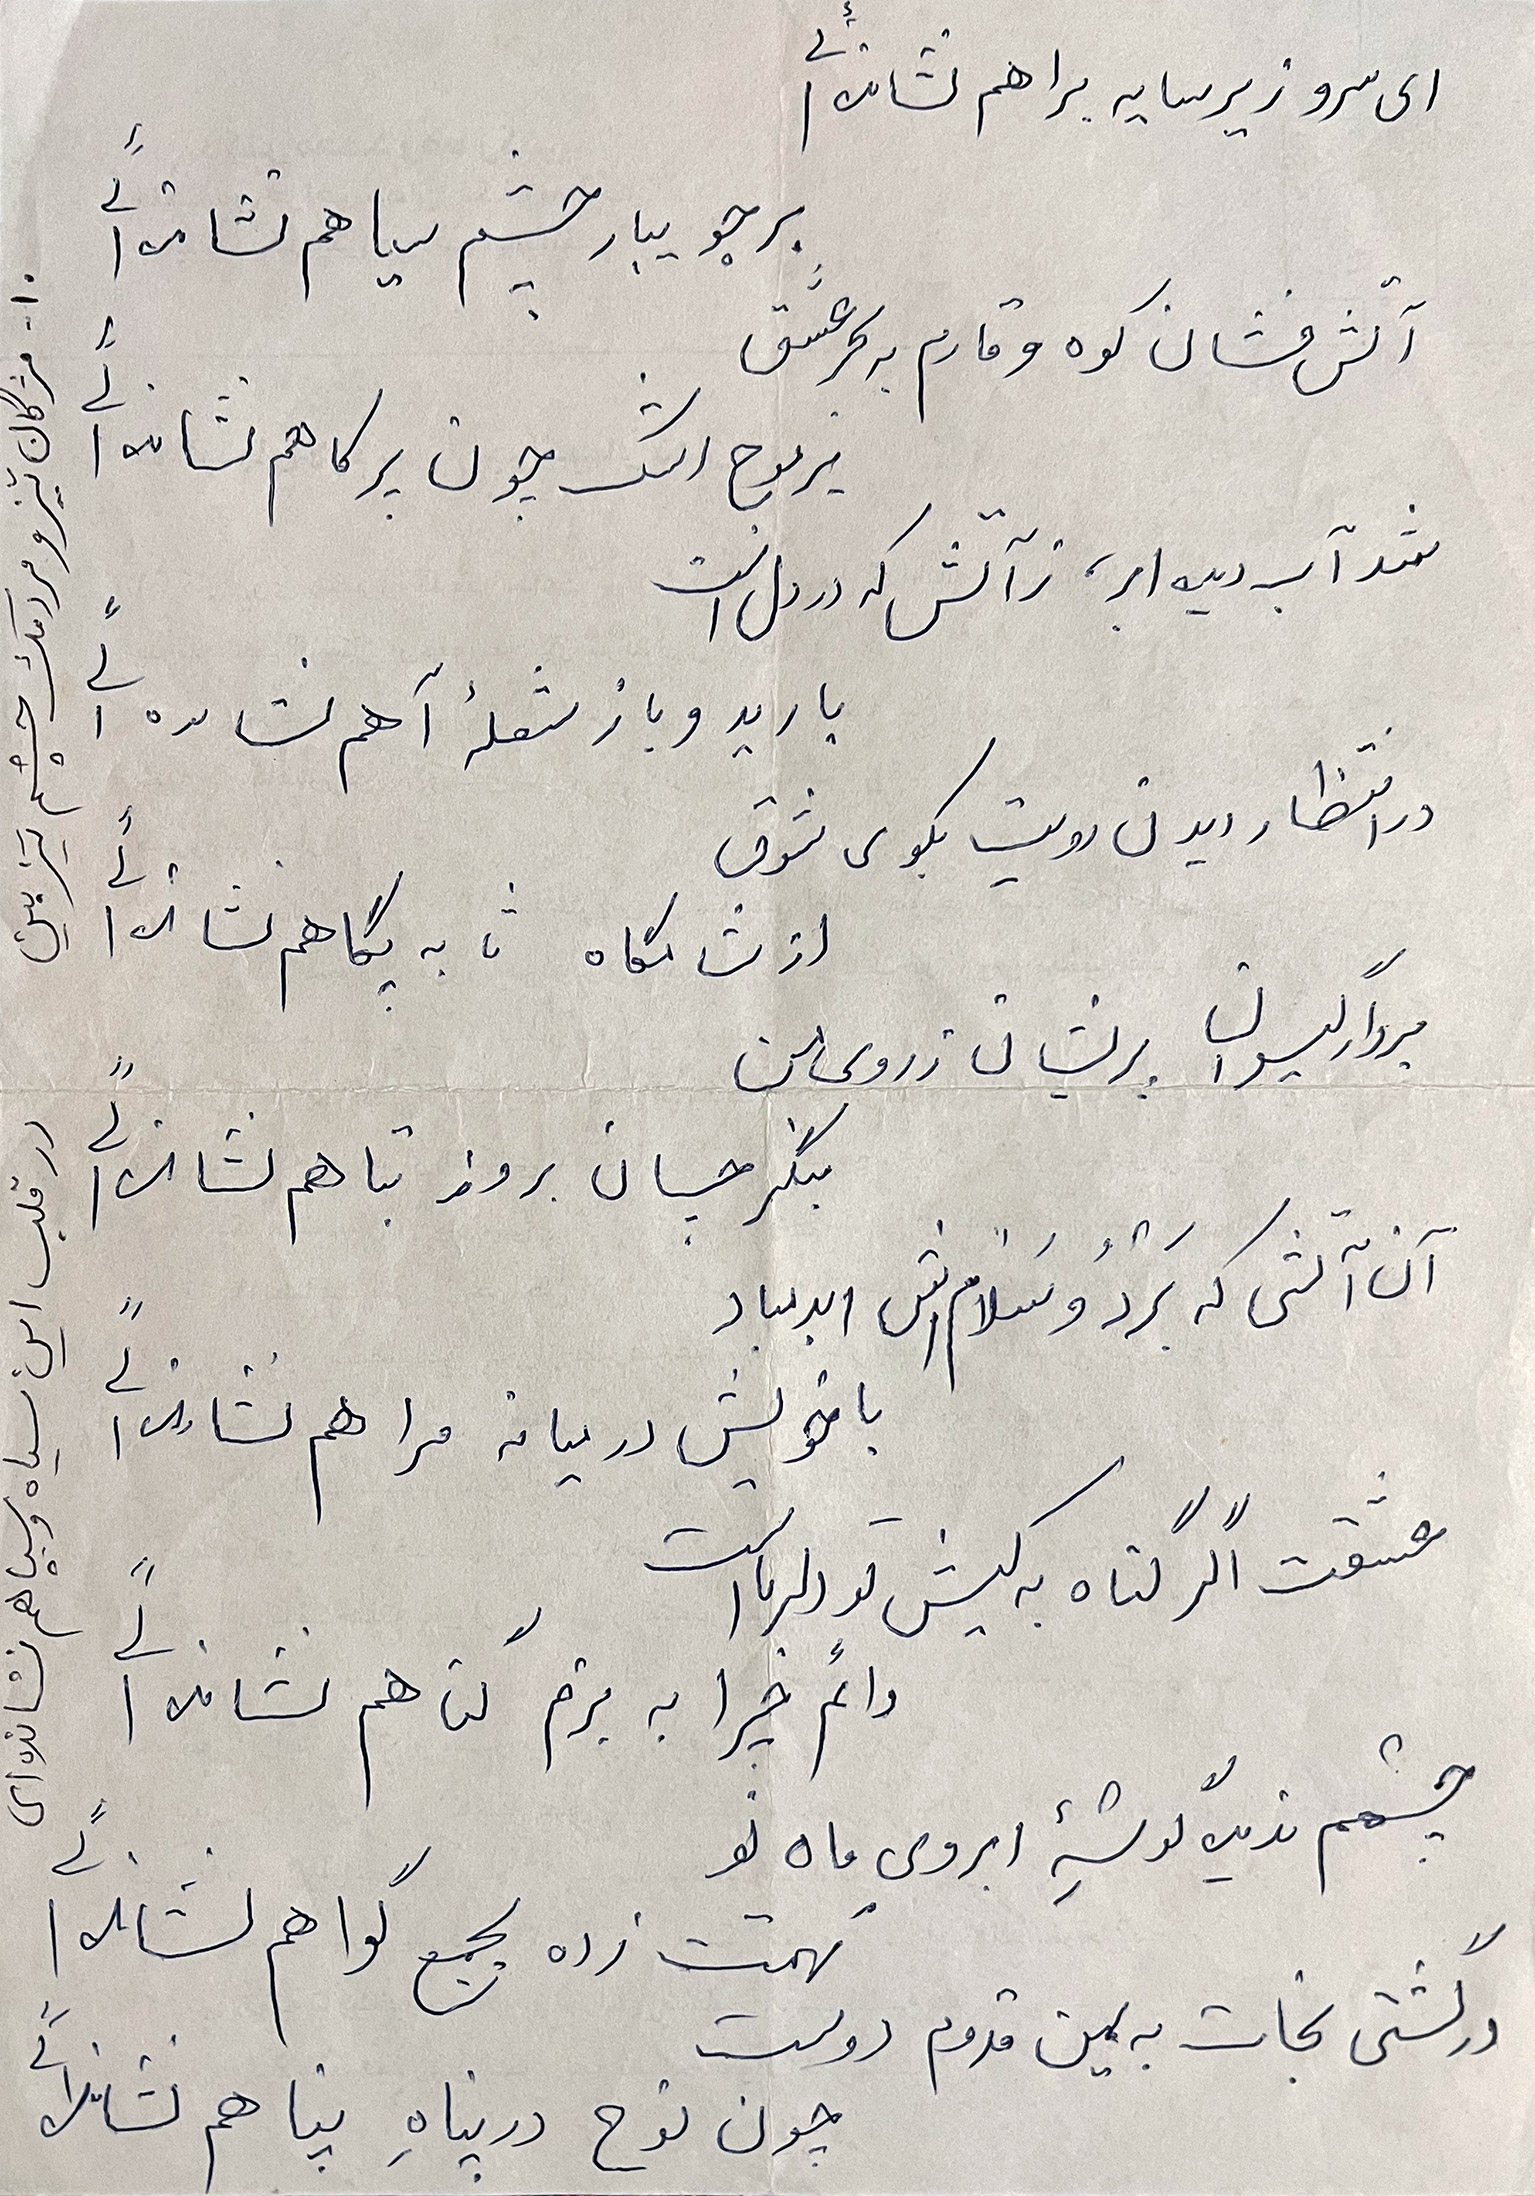 ای سرو زیر سایه براهم نشانده‌ای
بر جویبار چشم سیاهم نشانده‌ای
آتش فشان کوه وقارم به بحر عشق
بر موج اشک چون پر کاهم نشانده‌ای
شد آب دیده ابر، ز آتش که در دل است
بارید و باز شعلهٔ آهم نشانده‌ای
در انتظار دیدن رویت بکوی شوق
از شامگاه تا به پگاهم نشانده‌ای
بردار گیسوان پریشان ز روی من
بنگر چسان بروز تباهم نشانده‌ای
آن آتشی که بَرْدُ وَ سَلام‌اش ابد مباد
با خویش در میانه مرا هم نشانده‌ای
عشقت اگر گناه به کیش تو دلرباست
دائم چرا به بزم گناهم نشانده‌ای
چشمم ندیده گوشهٔ ابروی ماه نو
تهمت زده بجمع گواهم نشانده‌ای
در کشتی نجات به یمن قدوم دوست
چون نوح در پناهِ پناهم نشانده‌ای
۱۰- مژگان تیز و مردمک چشم
در قلب این سیاه و سپاهم نشانده‌ای